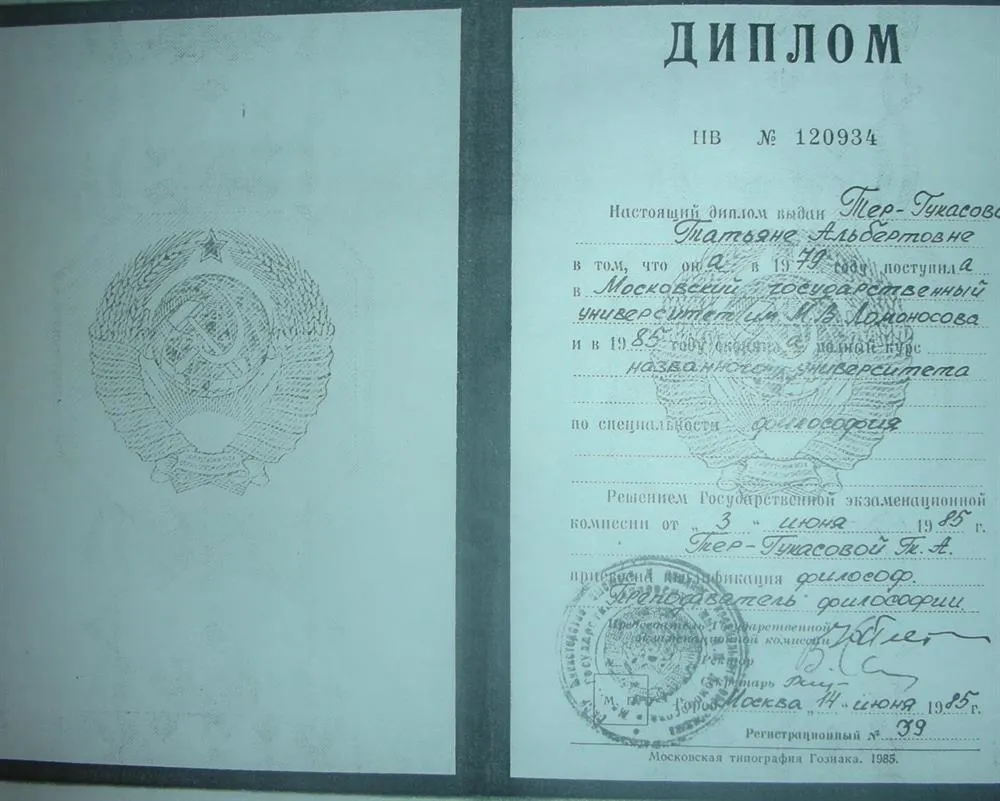 ДИПЛОМ
НВ № 120934
Настоящий диплом выдан Тер-Гукасово
Татьяне Альбертовне
в том, что он а в 1979 году поступил а
в Московский государственный
университет им. М.В. Ломоносова
и в 1985 году окончил а полный курс
названного университета
по специальности философия
Решением Государственной экзаменационной
комиссии от „3“ июня 1985 г.
Тер-Гукасовой Т. А.
присвоена квалификация философ.
Преподаватель философии
Председатель Государственной
экзаменационной комиссии
Ректор
Секретарь
М. П.
Город Москва „14“ июня 1985 г.
Регистрационный № 39
Московская типография Гознака. 1985.